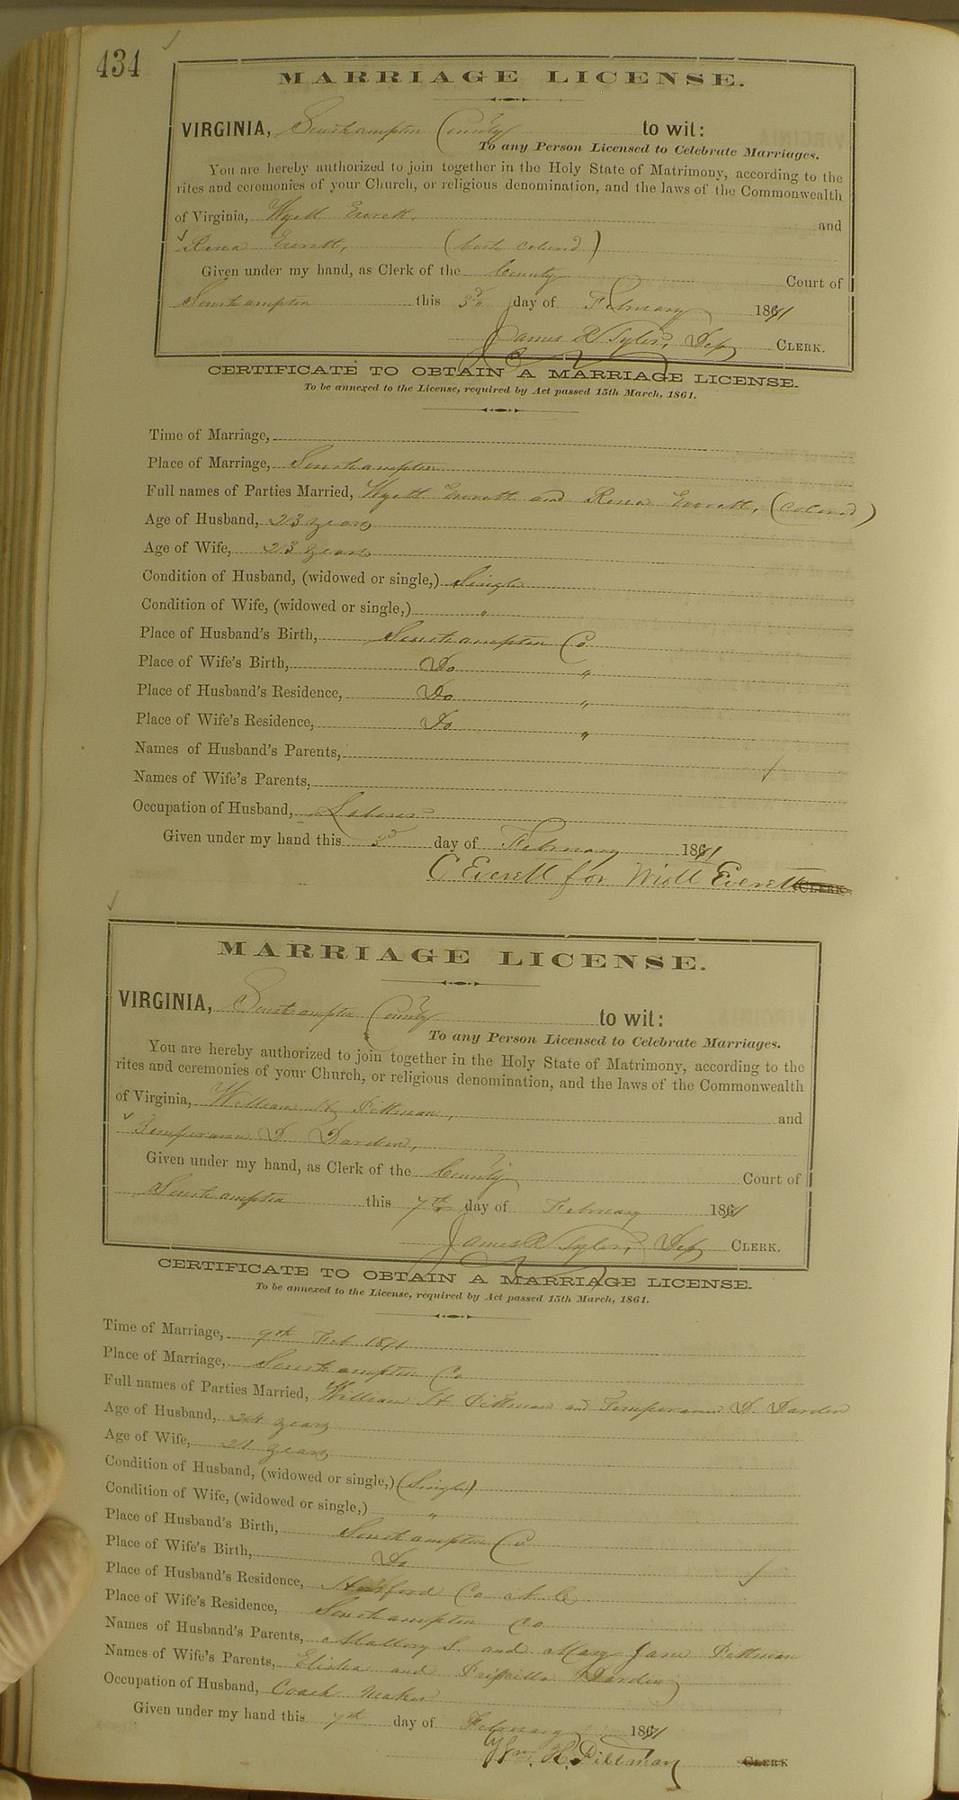 434
MARRIAGE LICENSE.
VIRGINIA, Southampton County to wit:
To any Person Licensed to Celebrate Marriages.
You are hereby authorized to join together in the Holy State of Matrimony, according to the
rites and ceremonies of your Church, or religious denomination, and the laws of the Commonwealth
of Virginia, Wyatt Everett, and
Rena Everett, (both colored)
Given under my hand, as Clerk of the County Court of
Southampton this 3d day of February 1871
James R Tyler, Dep CLERK.
CERTIFICATE TO OBTAIN A MARRIAGE LICENSE.
To be annexed to the License, required by Act passed 15th March, 1861.
Time of Marriage,
Place of Marriage, Southampton
Full names of Parties Married, Wyatt Everett and Rena Everett, (Colored)
Age of Husband, 23 years
Age of Wife, 23 years
Condition of Husband, (widowed or single,) Single
Condition of Wife, (widowed or single,) "
Place of Husband's Birth, Southampton Co
Place of Wife's Birth, Do "
Place of Husband's Residence, Do "
Place of Wife's Residence, Do "
Names of Husband's Parents,
Names of Wife's Parents,
Occupation of Husband, Laborer
Given under my hand this 3d day of February 1871
C Everett for Wiott Everett CLERK
MARRIAGE LICENSE.
VIRGINIA, Southampton County to wit:
To any Person Licensed to Celebrate Marriages.
You are hereby authorized to join together in the Holy State of Matrimony, according to the
rites and ceremonies of your Church, or religious denomination, and the laws of the Commonwealth
of Virginia, William H Pittman, and
Temperann D. Darden,
Given under my hand, as Clerk of the County Court of
Southampton this 7th day of February 1871
James R Tyler, Dep CLERK.
CERTIFICATE TO OBTAIN A MARRIAGE LICENSE.
To be annexed to the License, required by Act passed 15th March, 1861.
Time of Marriage, 9th Feb 1871
Place of Marriage, Southampton Co
Full names of Parties Married, William H Pittman and Temperann D. Darden
Age of Husband, 24 years
Age of Wife, 21 years
Condition of Husband, (widowed or single,) (Single)
Condition of Wife, (widowed or single,) "
Place of Husband's Birth, Southampton Co
Place of Wife's Birth, Do
Place of Husband's Residence, Hertford Co N.C.
Place of Wife's Residence, Southampton Co
Names of Husband's Parents, Mallory S. and Mary Jane Pittman
Names of Wife's Parents, Elisha and Priscilla Darden
Occupation of Husband, Coach Maker
Given under my hand this 7th day of February 1871
Wm. H. Pittman CLERK